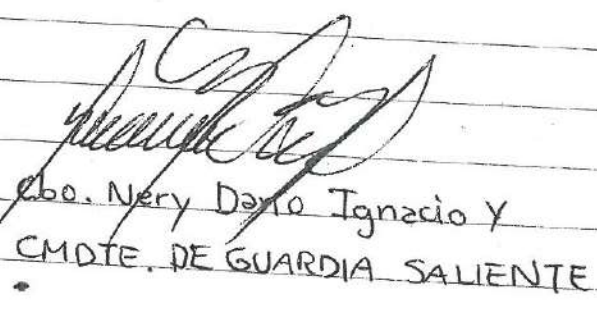 Cbo. Nery Dario Ignacio Y
CMDTE. DE GUARDIA SALIENTE